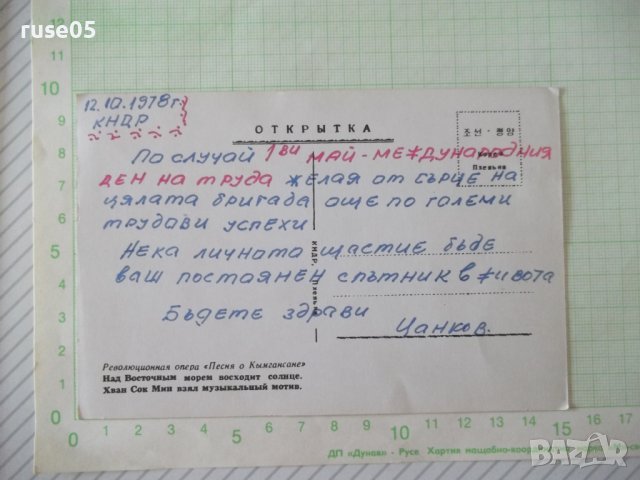 ruse05
12.10.1978 г.
КНДР
ОТКРЫТКА
조선·평양
Корея
Пхеньян
По случай 1ви май - международния
ден на труда желая от сърце на
цялата бригада още по големи
трудови успехи
Нека личното щастие бъде
ваш постоянен спътник в живота
Бъдете здрави
Цанков.
КНДР. Пхеньян
Революционная опера «Песня о Кымгансане»
Над Восточным морем восходит солнце.
Хван Сок Мин взял музыкальный мотив.
12
10
9
8
7
6
5
4
3
2
1
0
0 1 2 3 4 5 6 7 8 9 10 11 12 13 14 15 16 17
ДП «Дунав» - Русе
BAZAR